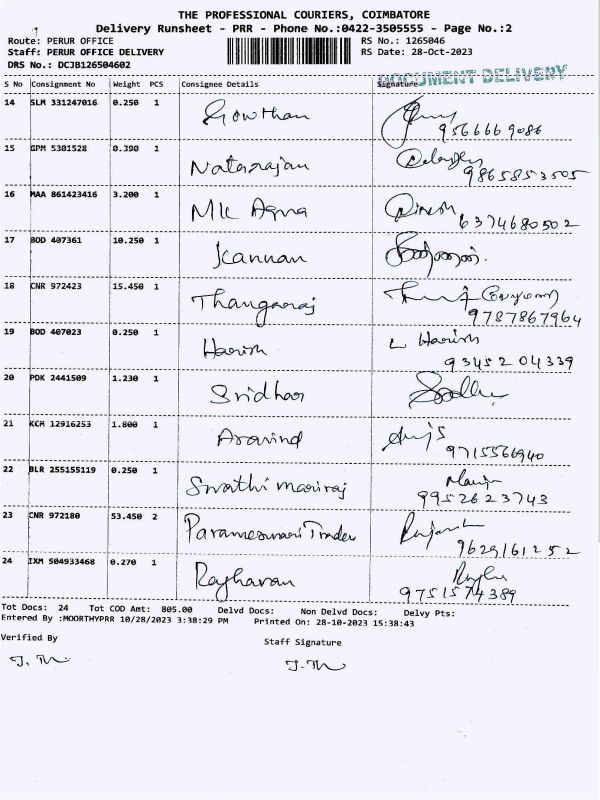 THE PROFESSIONAL COURIERS, COIMBATORE
Delivery Runsheet - PRR - Phone No.:0422-3505555 - Page No.:2
Route: PERUR OFFICE RS No.: 1265046
Staff: PERUR OFFICE DELIVERY RS Date: 28-Oct-2023
DRS No.: DCJB126504602
DOCUMENT DELIVERY
S No Consignment No Weight PCS Consignee Details Signature
14 SLM 331247016 0.250 1 Gowthan
9566669086
15 GPM 5301528 0.390 1 Natarajan
9865853505
16 MAA 861423416 3.200 1 MK Agna Dinesh
6374680502
17 BOD 407361 10.250 1 Kannan
18 CNR 972423 15.450 1 Thangaraj
9787867964
19 BOD 407023 0.250 1 Harish L Harish
93452 04339
20 PDK 2441509 1.230 1 Sridhar
21 KCM 12916253 1.800 1 Aravind
9715566940
22 BLR 255155119 0.250 1 Swathi Mariraj
9952623743
23 CNR 972180 53.450 2 Parameswari Trader
9629161252
24 IXM 504933468 0.270 1 Raghavan Raghu
9751574389
Tot Docs: 24 Tot COD Amt: 805.00 Delvd Docs: Non Delvd Docs: Delvy Pts:
Entered By :MOORTHYPRR 10/28/2023 3:38:29 PM Printed On: 28-10-2023 15:38:43
Verified By Staff Signature